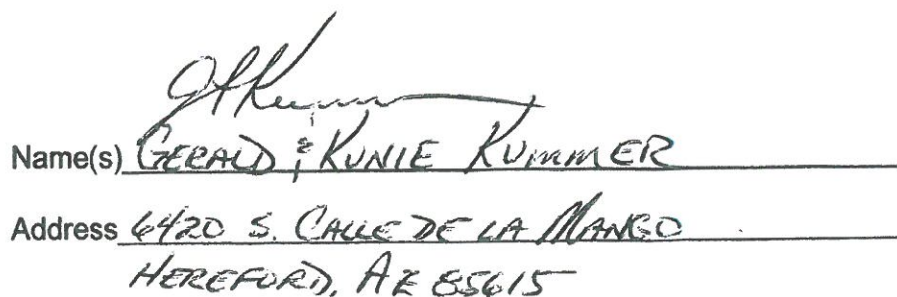 GJKumm
Name(s) GERALD & KUNIE KUMMER
Address 6420 S. CALLE DE LA MANGO
HEREFORD, AZ 85615